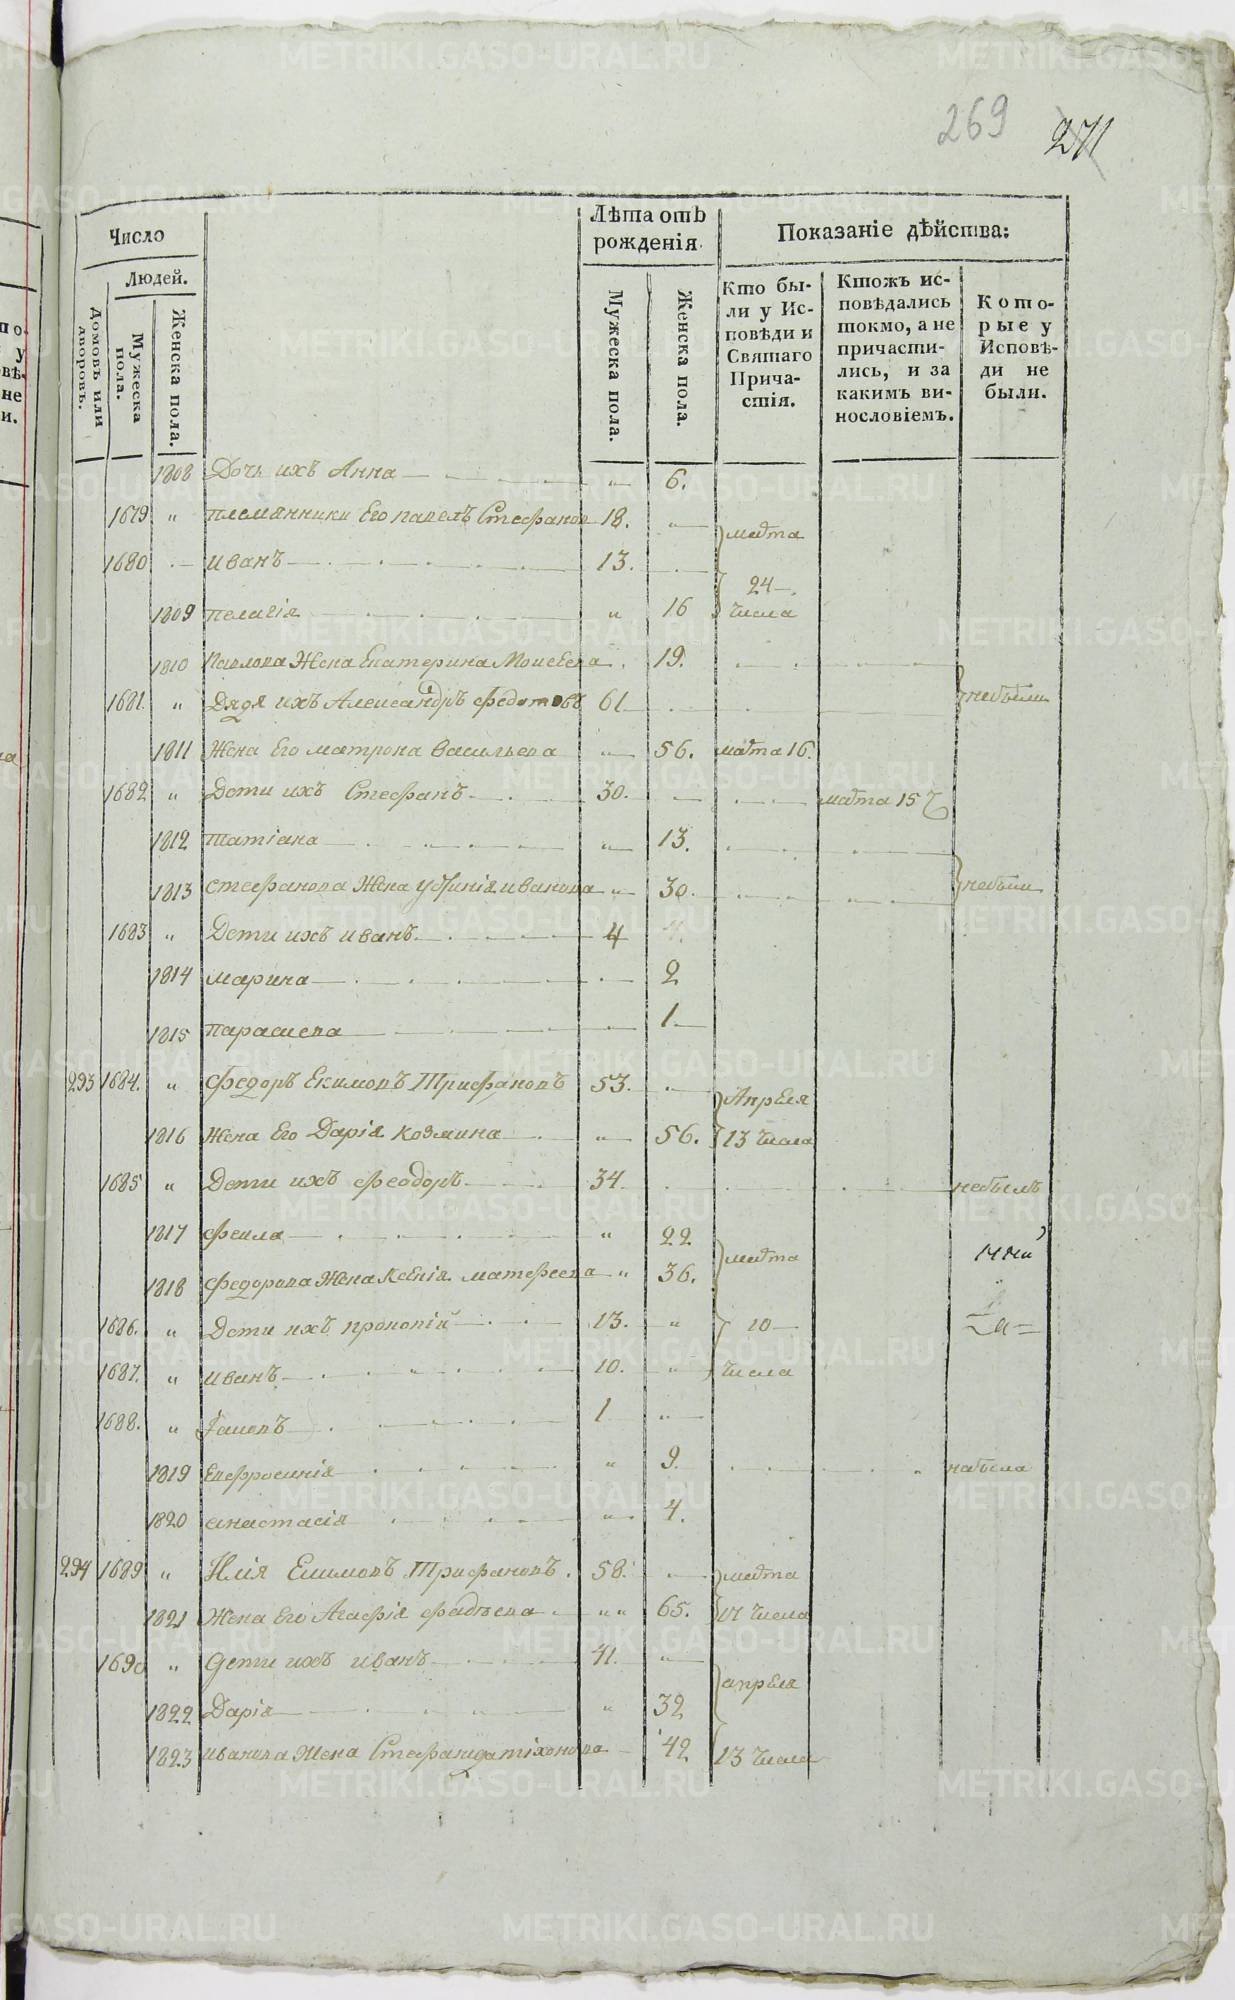 269 271
Число
Людей.
Домовъ или дворовъ.
Мужеска пола.
Женска пола.
Лѣта отъ рожденія.
Мужеска пола.
Женска пола.
Показаніе дѣйства:
Кто бы-
ли у Ис-
повѣди и
Святаго
Прича-
стія.
Ктожъ ис-
повѣдались
токмо, а не
причасти-
лись, и за
какимъ ви-
нословіемъ.
Кото-
рые у
Исповѣ-
ди не
были.
1808 Дочь ихъ Анна — „ 6.
1679 „ племянники Его павелъ Стефанов 18. „
марта
1680 иванъ 13.
24
1809 пелагія „ 16 числа
1810 Павлова Жена Екатерина Моисеева 19.
1681. „ Дядя ихъ Александръ федотовъ 61 небыли
1811 Жена Его матрона васильева „ 56. марта 16.
1682 „ Дети ихъ Стефанъ 30. марта 15
1812 татіана „ 13.
1813 стефанова Жена устинія иванова „ 30. небыли
1683 „ Дети ихъ иванъ 4
1814 марина 2
1815 парасчева 1
293 1684. „ федоръ Екимовъ Трифановъ 53. „ Апреля
1816 Жена Его Дарія козмина „ 56. 13 числа
1685 „ Дети ихъ феодоръ 34 небылъ
1817 фекла „ 22 марта
1818 федорова Жена Ксенія матфеева „ 36.
1686. „ Дети ихъ прокопій 13. „ 10
1687. „ иванъ 10. „ числа
1688. „ Іаковъ 1 „
1819 Евфросинія „ 9. небыла
1820 анастасія „ 4.
294 1689 „ Илія Екимовъ Трифановъ. 58. марта
1821 Жена Его Агафія фадѣева „ 65. 17 числа
1690 „ дети ихъ иванъ 41. „
апреля
1822 Дарія „ 32
1823 иванова Жена Стефанида тіхонова 42 13 числа
METRIKI.GASO-URAL.RU